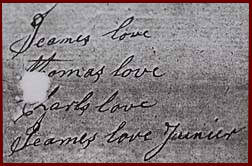 Seames love
thomas love
Charls love
Seames love Junier